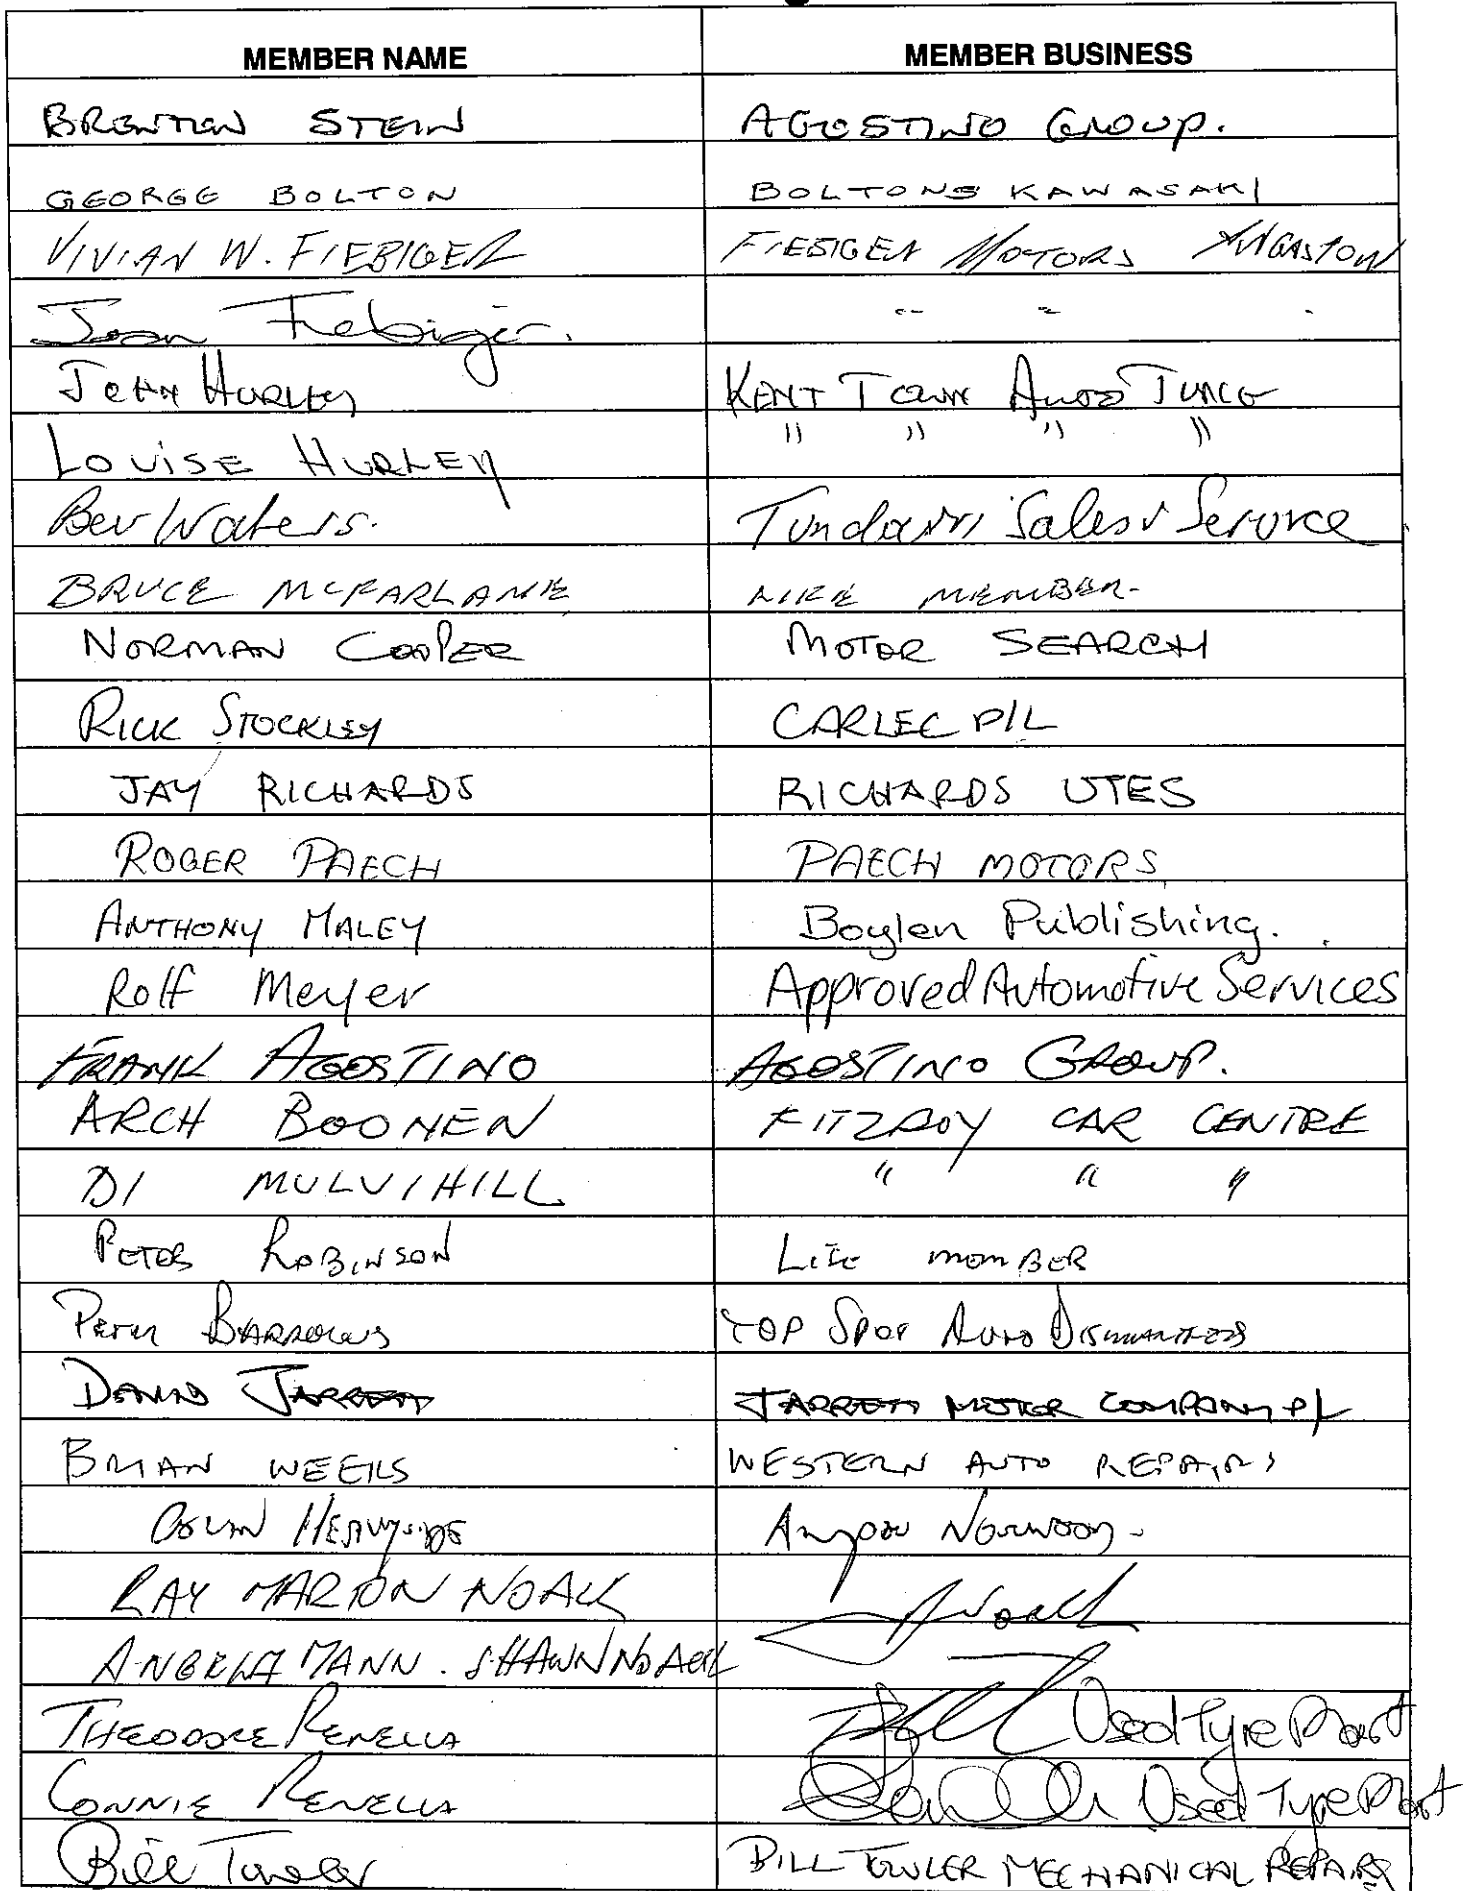 MEMBER NAME MEMBER BUSINESS
BRENTON STEIN AGOSTINO GROUP.
GEORGE BOLTON BOLTONS KAWASAKI
VIVIAN W. FIEBIGER FIEBIGER MOTORS ANGASTON
Joan Fiebiger. " " "
JOHN HURLEY KENT TOWN AUTO TUNE
LOUISE HURLEY " " " "
Bev Waters. Sales & Service
BRUCE McFARLANE LIFE MEMBER.
NORMAN COOPER MOTOR SEARCH
RICK STOCKLEY CARLEC P/L
JAY RICHARDS RICHARDS UTES
ROGER PAECH PAECH MOTORS
ANTHONY MALEY Boylen Publishing.
Rolf Meyer Approved Automotive Services
FRANK AGOSTINO AGOSTINO GROUP.
ARCH BOONEN FITZROY CAR CENTRE
DI MULVIHILL " " "
PETER ROBINSON LIFE MEMBER
PETER BARROWS TOP SPOT AUTO DISMANTLERS
DAVID JARRETT JARRETT MOTOR COMPANY P/L
BRIAN WEEKS WESTERN AUTO REPAIRS
COLIN HEAVYSIDE AMPOL NORWOOD -
RAY MARION NOACK
Noack
ANGELA MANN. SHAWN NOACK
THEODORE RENELLA Used Tyre Mart
CONNIE RENELLA Used Tyre Mart
Bill Towler BILL TOWLER MECHANICAL REPAIRS